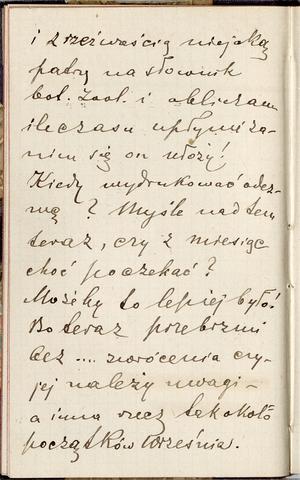 i z rzeźwością niejaką
patrzę na słownik
bot. zool. i obliczam
ile czasu upłynie za-
nim się on ułoży!
Kiedy wydrukować odez-
wę? Myślę nad tem
teraz, czy z miesiąc
choć poczekać?
Możeby to lepiej było!
Bo teraz przebrzmi
bez .... zwrócenia czy-
jej należy uwagi –
a inna rzecz tak około
początków Września.